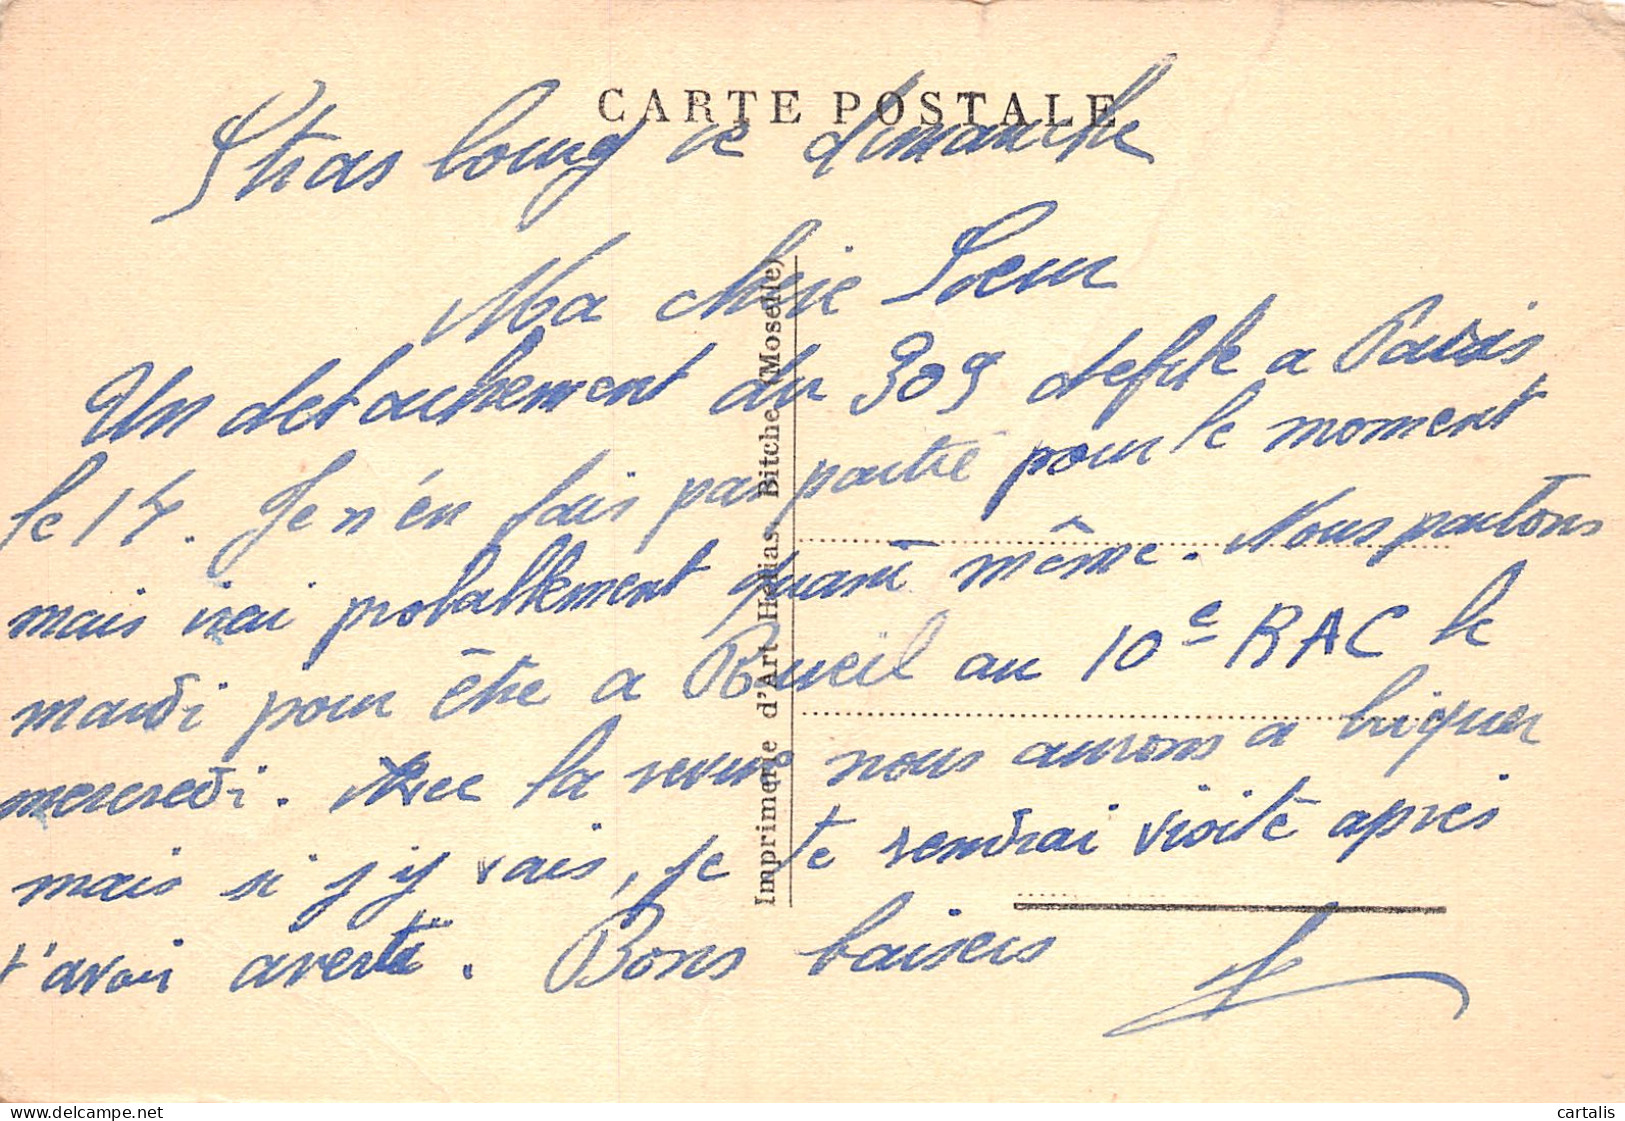 CARTE POSTALE
Strasbourg ce dimanche
Ma chère Soeur
Un detachement du 309 defile a Paris
le 14. Je n'en fais pas partie pour le moment
mais irai probablement quant même. Nous partons
mardi pour être a Rueil au 10e RAC le
mercredi. Avec la revue nous aurons a briquer
mais si j'y vais, je te rendrai visite après
t'avoir averti. Bons baisers
Imprimerie d'Art Hélias, Bitche (Moselle)
www.delcampe.net
cartalis